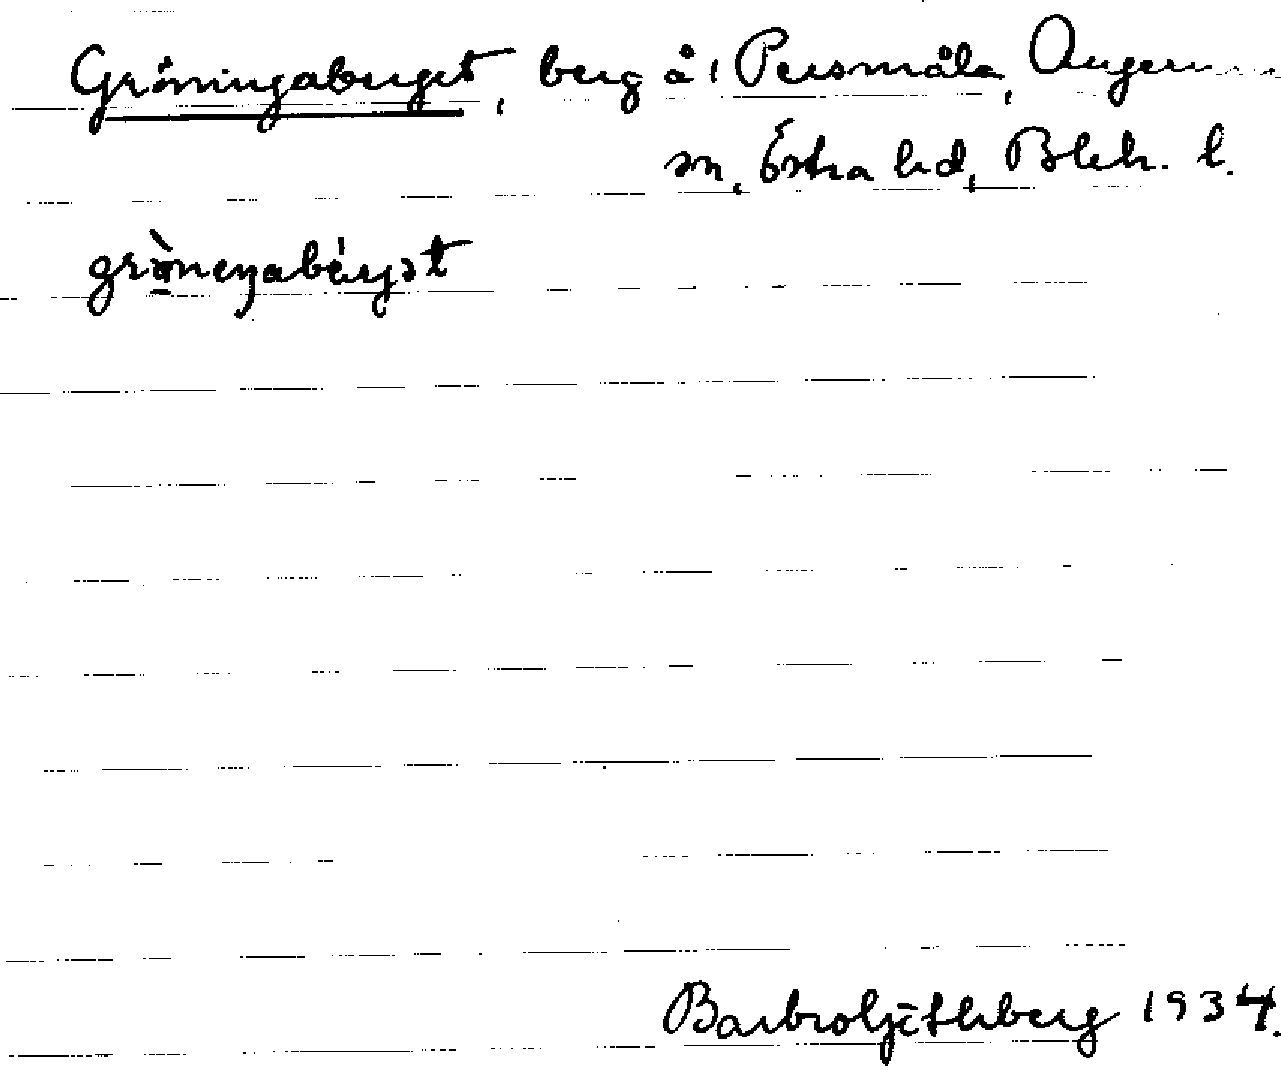 Gröningaberget, berg å, Persmåla, Augerum
sn, Östra hd, Blek. l.
grò̱neŋabéryət
Barbro Ljüthberg 1934.